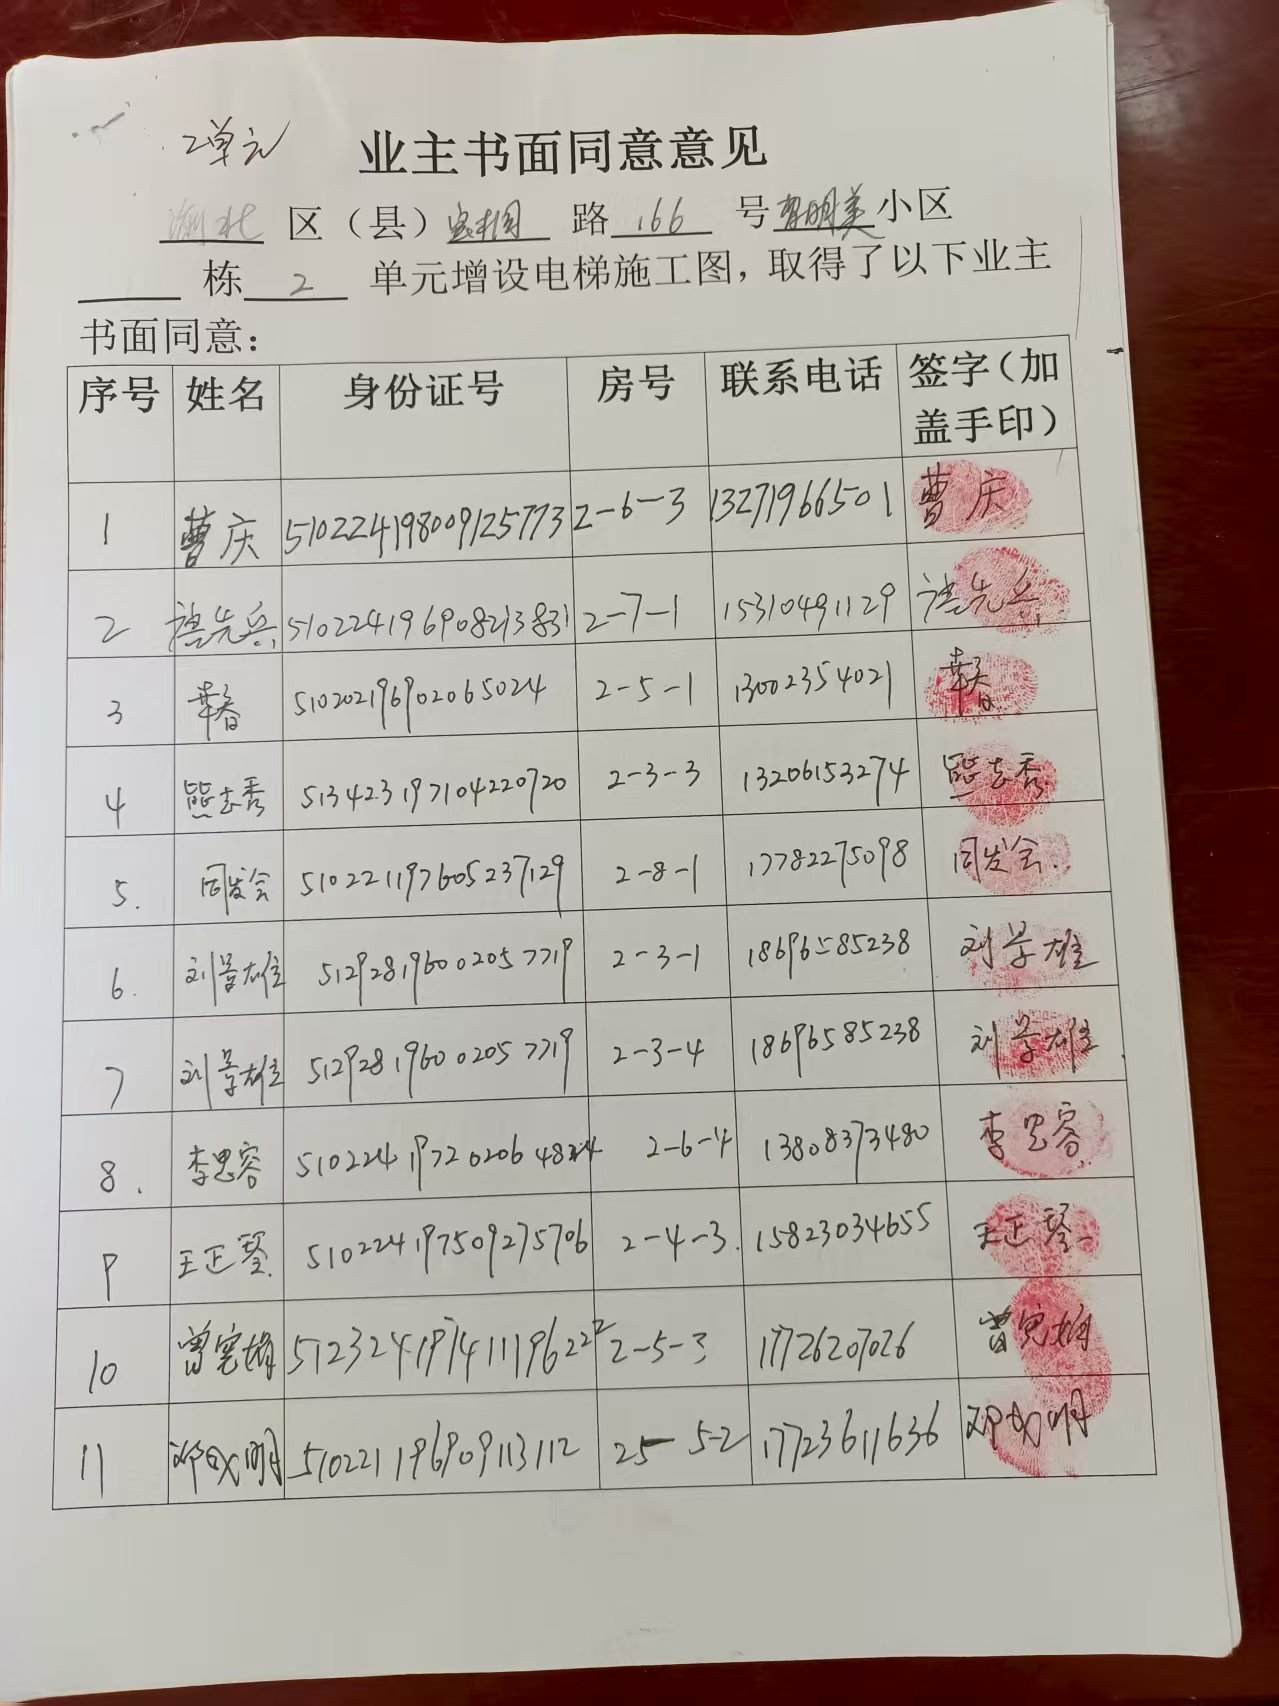 2单元 业主书面同意意见
渝北 区（县） 路 166 号 小区
栋 2 单元增设电梯施工图，取得了以下业主
书面同意：
序号 姓名 身份证号 房号 联系电话 签字（加盖手印）
1 曹庆 510224198009125773 2-6-3 13271966501 曹庆
2 先兵 510224196908213831 2-7-1 15310491129 先兵
3 510202196902065024 2-5-1 13002354021
4 熊志秀 513423197104220720 2-3-3 13206153274 熊志秀
5. 周发会 510221197605237129 2-8-1 17782275098 周发会.
6. 刘景雄 512928196002057719 2-3-1 18696585238 刘景雄
7 刘景雄 512928196002057719 2-3-4 18696585238 刘景雄
8. 李思容 2-6-4 13808373480 李思容
9 王正琴 510224197509275706 2-4-3. 15823034655 王正琴
10 曾宪娟 512324197411196222 2-5-3 17726207026 曾宪娟
11 邓成明 510221196909113112 5-2 17723611636 邓成明